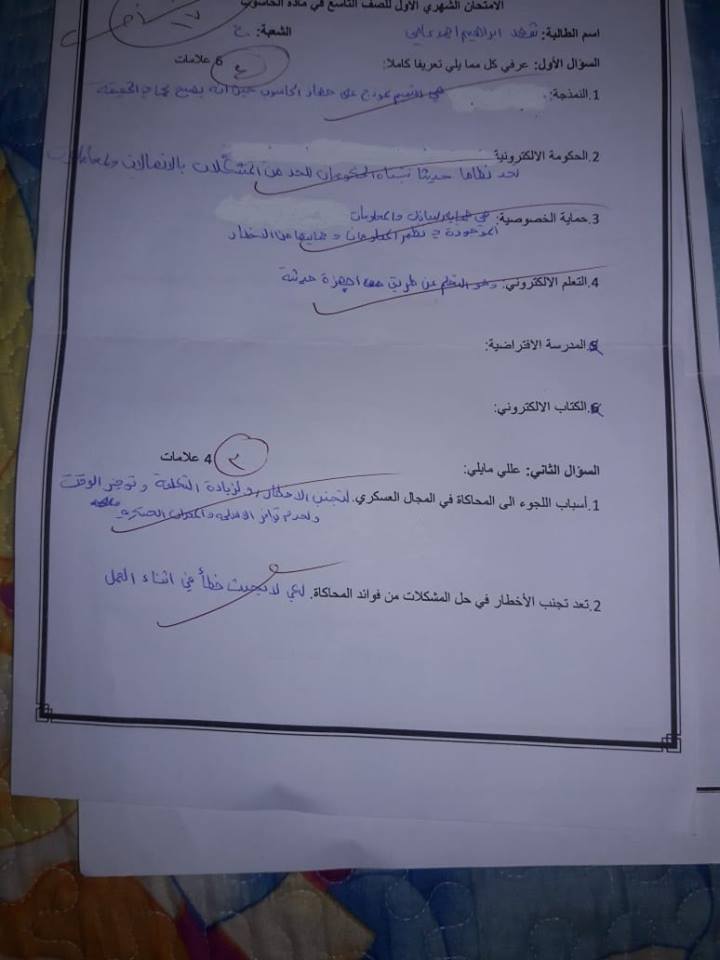 الامتحان الشهري الاول للصف التاسع في مادة الحاسوب
اسم الطالبة: شهد ابراهيم احمد علي الشعبة: ج
السؤال الأول: عرفي كل مما يلي تعريفا كاملا: 6 علامات
٤
1.النمذجة: هي تصميم نموذج على جهاز الحاسوب حيث انه يصبح الحقيقة
2.الحكومة الالكترونية
نظاما حديثا الحكومات للحد من المشكلات بالاتصالات
3.حماية الخصوصية: هي حماية الرسائل والمعلومات
الموجودة في نظم المعلومات و حمايتها من الاخطار
4.التعلم الالكتروني: وهو التعلم عن طريق اجهزة حديثة
5.المدرسة الافتراضية:
6.الكتاب الالكتروني:
السؤال الثاني: عللي مايلي: 4 علامات
٣
1.أسباب اللجوء الى المحاكاة في المجال العسكري. لتجنب الاخطار و لزيادة التكلفة و توفير الوقت
ولعدم توافر العسكرية
2.تعد تجنب الأخطار في حل المشكلات من فوائد المحاكاة. لكي لا يحدث خطأ في اثناء العمل